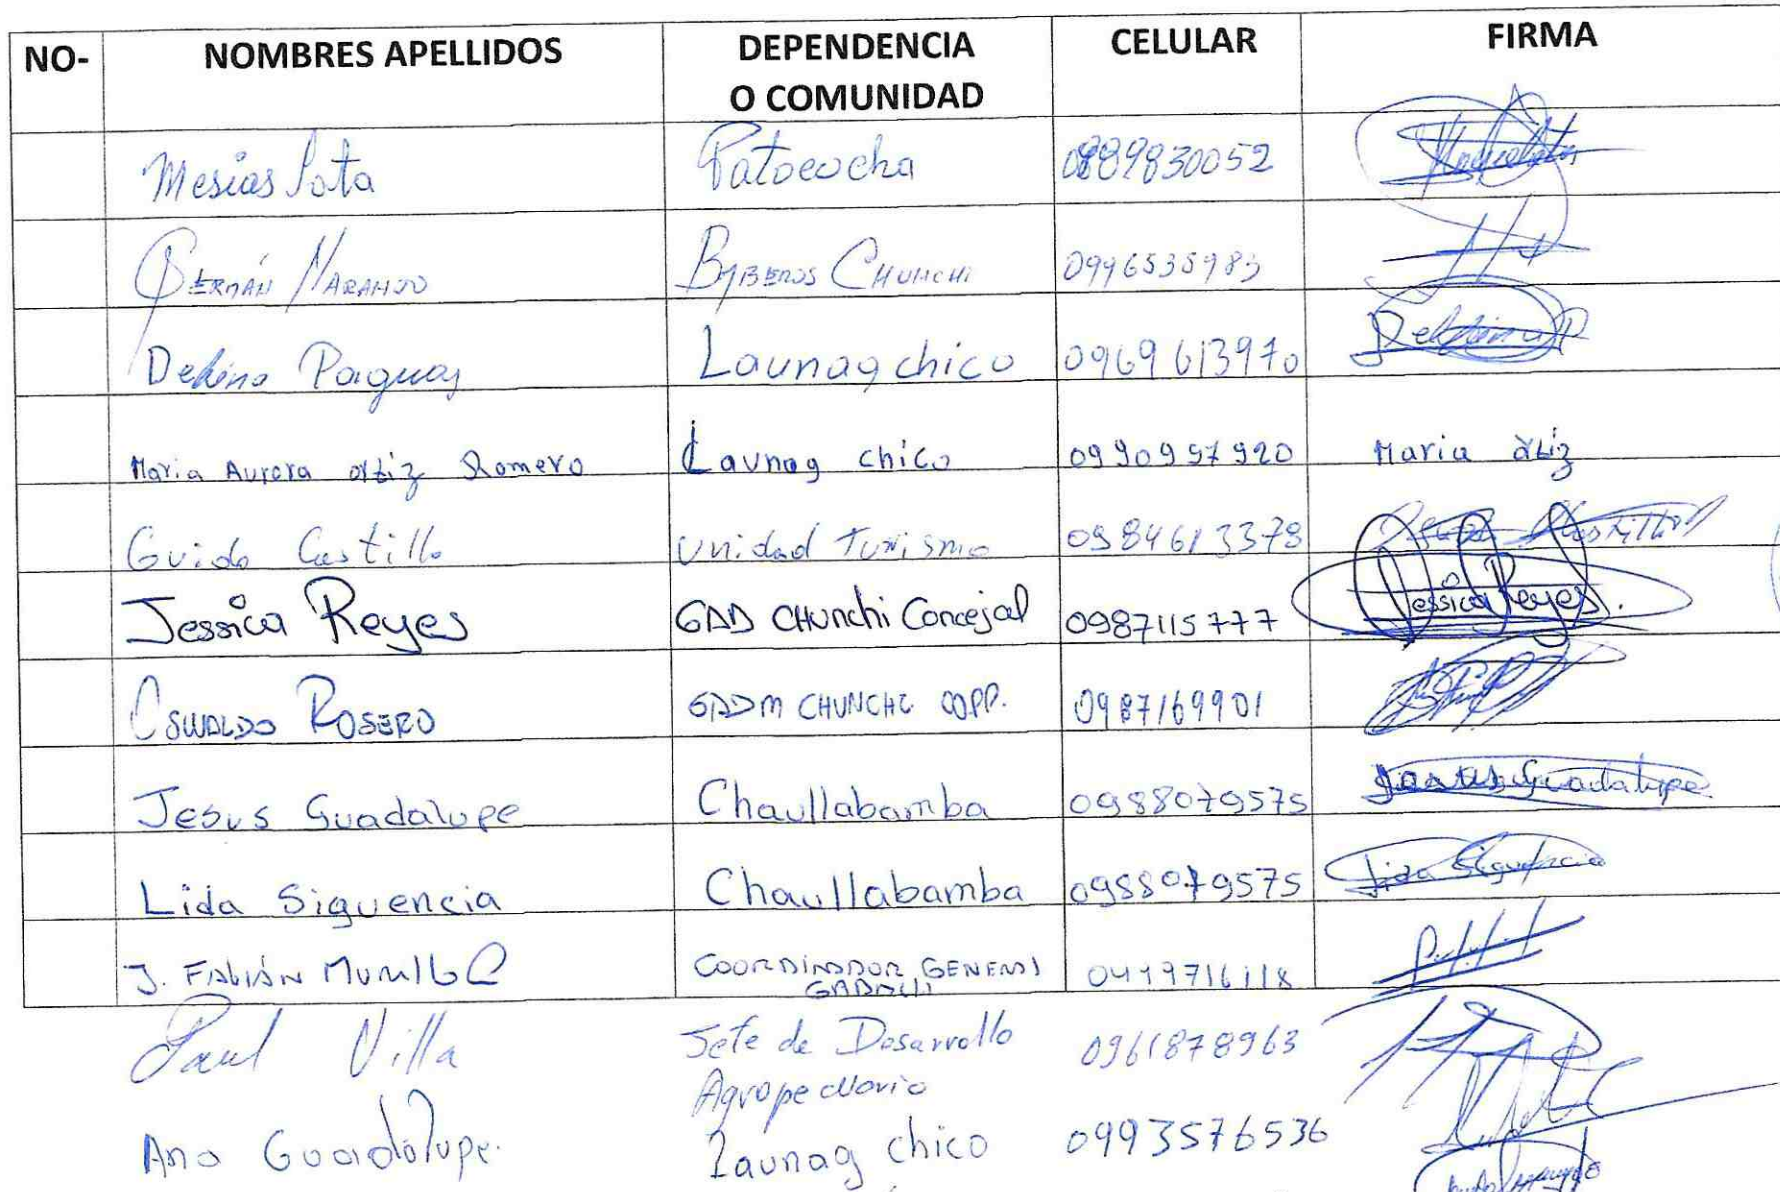 NO- NOMBRES APELLIDOS DEPENDENCIA O COMUNIDAD CELULAR FIRMA
Mesias Lota Patococha 0989830052
Germán Naranjo Bomberos Chunchi 0996535983
Delfina Paguay Launag chico 0969613970 Delfina P
Maria Aurora ortiz Romero Launag chico 0990957920 Maria ortiz
Guido Castillo Unidad Turismo 0984613378 Castillo
Jessica Reyes GAD CHunchi Concejal 0987115777 Jessica Reyes.
Oswaldo Rosero GADM CHUNCHI OOPP. 0987169901
Jesus Guadalupe Chaullabamba 0988079575 Jesus Guadalupe
Lida Siguencia Chaullabamba 0988079575 Lida Siguencia
J. FABIÁN MURILLO C COORDINADOR GENERAL
Paul Villa Jefe de Desarrollo Agropecuario 0961878963
Ana Guadalupe. Launag chico 0993576536